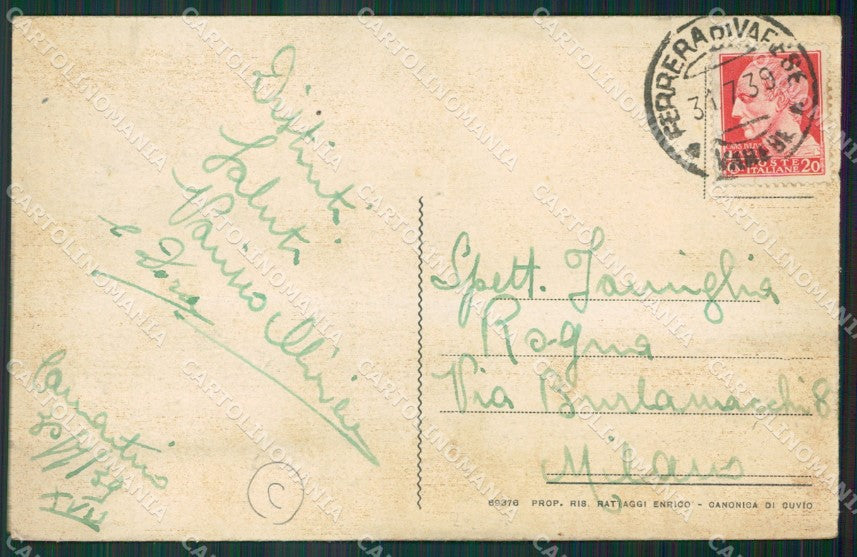 Distinti
Saluti
e Dora
30/7/39
XVII
FERRERA DI VARESE
31.7.39
VARESE
POSTE
ITALIANE 20
Spett. Famiglia
Rogna
Via Burlamacchi 8
Milano
C
69376 PROP. RIS. RATTAGGI ENRICO - CANONICA DI CUVIO
CARTOLINOMANIA